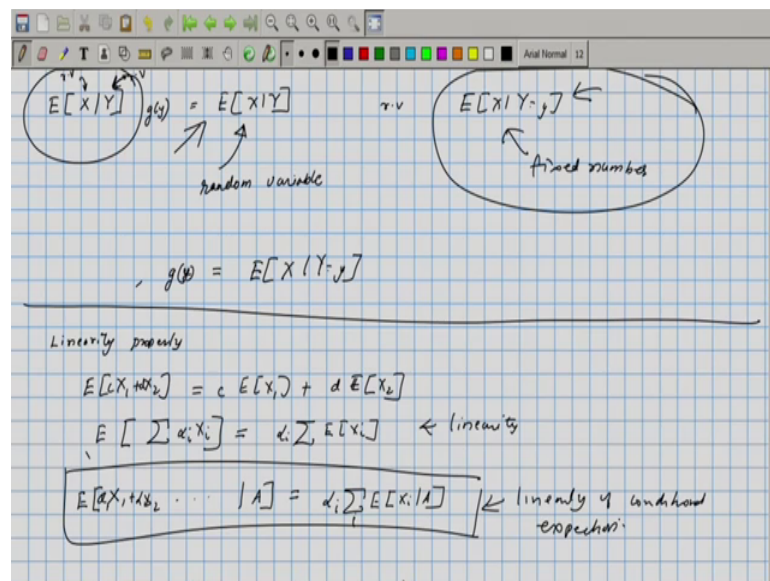 Arial Normal 12
r.v r.v
E[X|Y] g(y) = E[X|Y] r.v E[X|Y=y]
random variable
fixed number
, g(y) = E[X|Y=y]
Linearity property
E[cX₁+dX₂] = c E[X₁) + d E[X₂]
E[∑αᵢXᵢ] = αᵢ∑ E[Xᵢ] ← linearity
E[αX₁+αX₂ ... |A] = αᵢ∑ E[Xᵢ|A] ← linearly of conditional
expection.